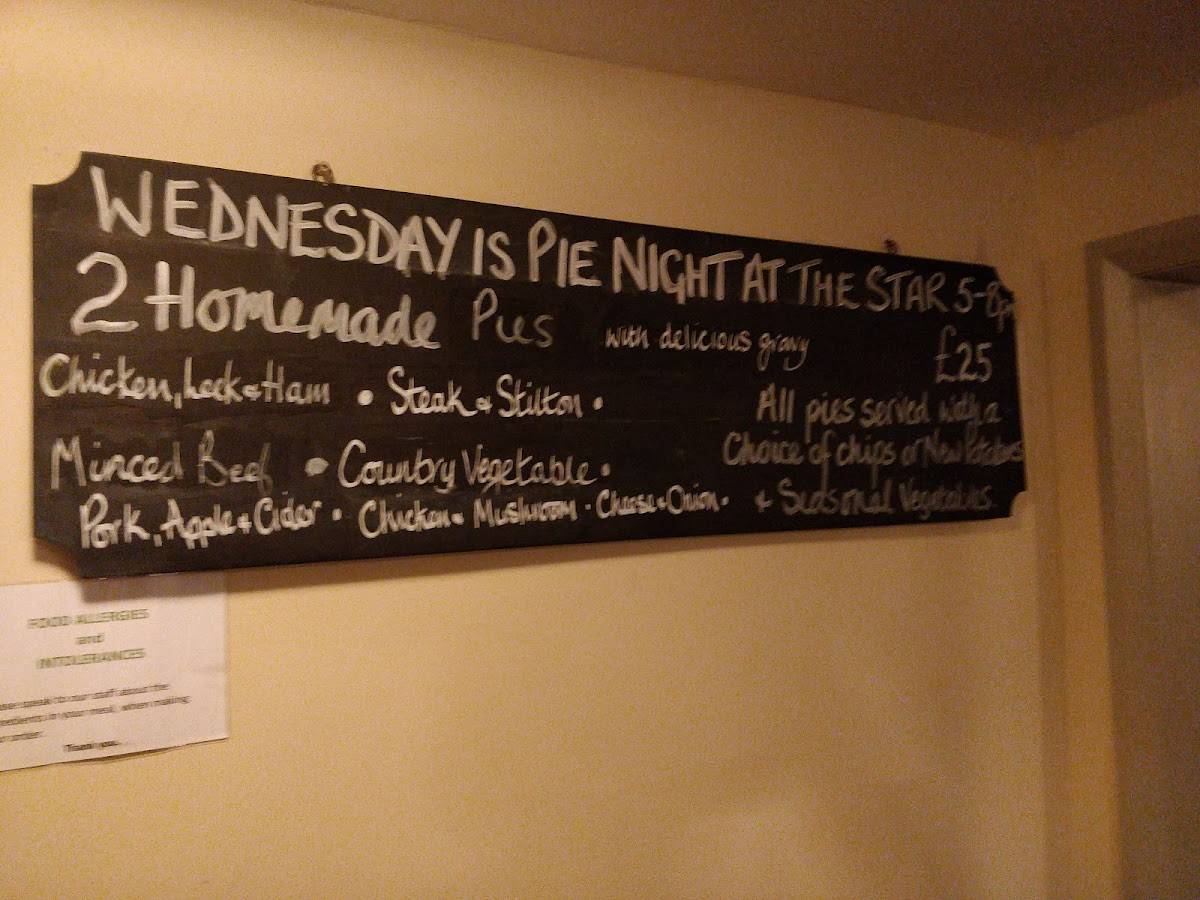 WEDNESDAY IS PIE NIGHT AT THE STAR 5-8pm
2 Homemade Pies with delicious gravy
£25
Chicken, Leek & Ham • Steak & Stilton •
All pies served with a
Minced Beef • Country Vegetable •
Choice of chips or New Potatoes
Pork, Apple & Cider • Chicken & Mushroom • Cheese & Onion •
& Seasonal Vegetables
FOOD ALLERGIES
and
INTOLERANCES
speak to our staff about the
in your meal, when making
order.
Thank you.